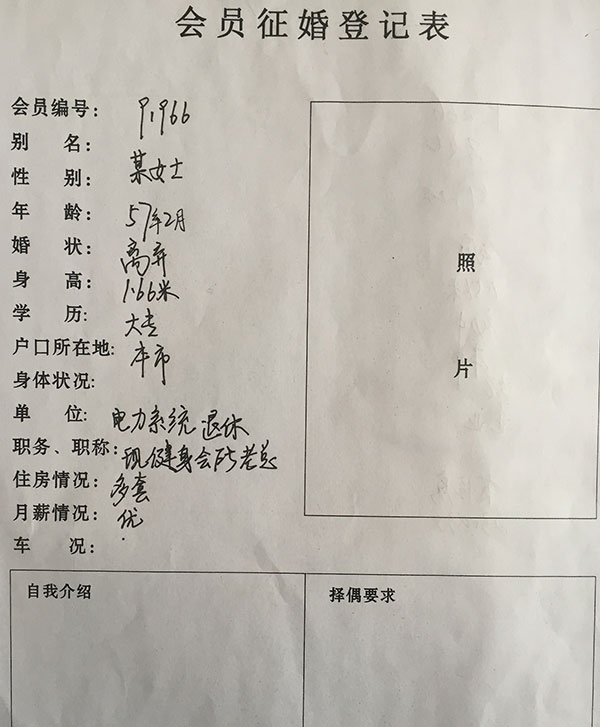 会员征婚登记表
会员编号: 91966
别 名:
性 别: 某女士
年 龄: 57年2月
婚 状: 离异
身 高: 1.66米
学 历: 大专
户口所在地: 本市
身体状况:
单 位: 电力系统 退休
职务、职称: 现健身会所老总
住房情况: 多套
月薪情况: 优
车 况:
照
片
自我介绍
择偶要求